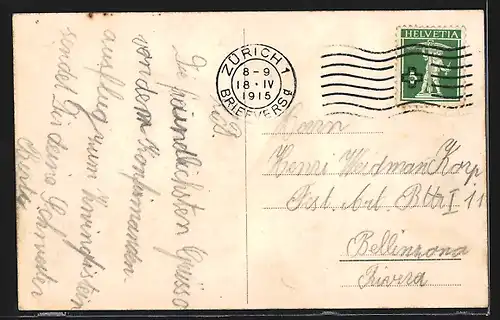 Die freundlichsten Grüsse
von dem Konfirmanden
ausflug zum Zwinglistein
sendet Dir deine Schwester
ZÜRICH 1
8-9
18·IV
1915
BRIEFVERS.g
HELVETIA
5
Herrn
Henri Weidman Korp
Fest. Art. Bttr I 11
Bellinzona
Rivera